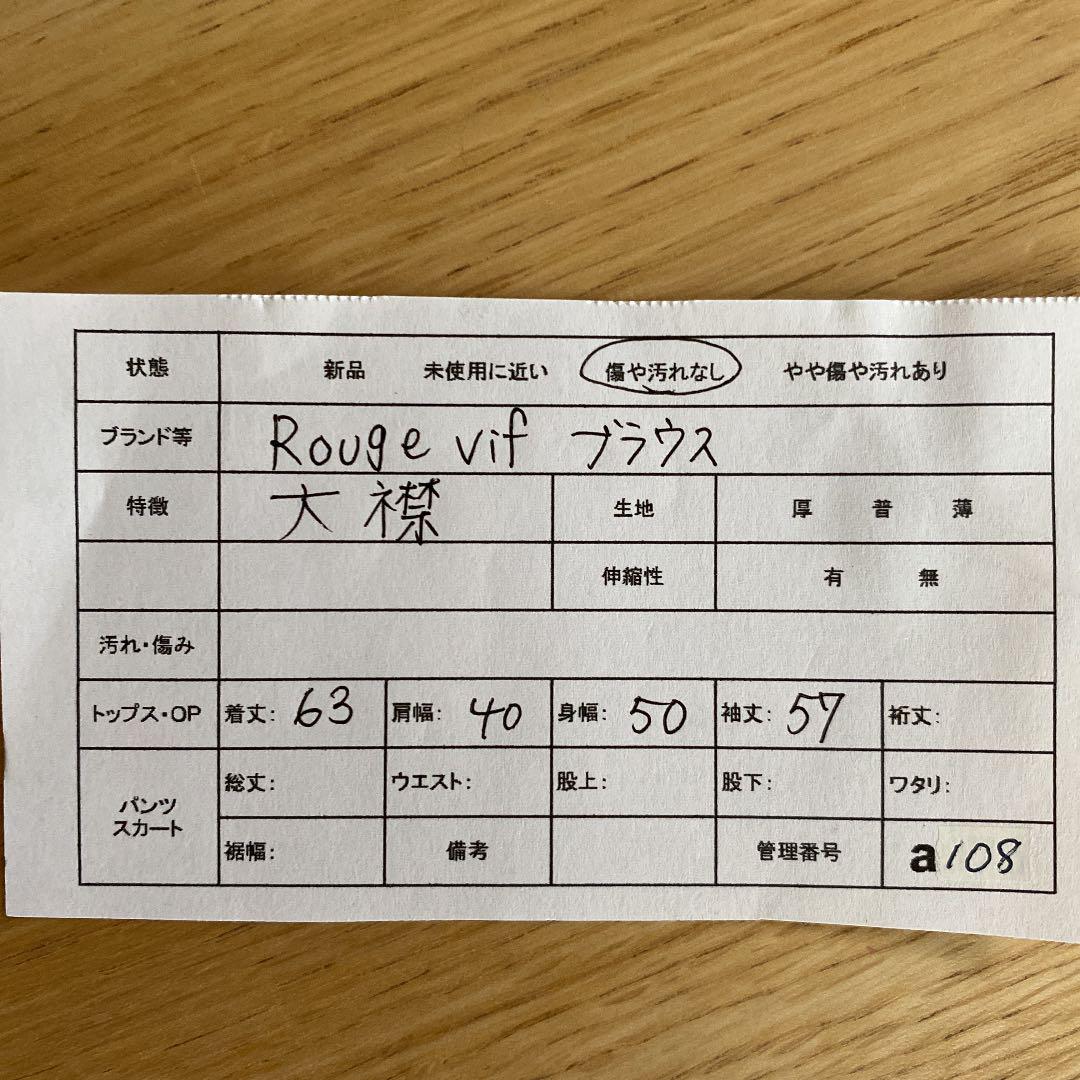 状態 新品 未使用に近い 傷や汚れなし やや傷や汚れあり
ブランド等 Rouge vif ブラウス
特徴 大襟 生地 厚 普 薄
伸縮性 有 無
汚れ・傷み
トップス・OP 着丈: 63 肩幅: 40 身幅: 50 袖丈: 57 裄丈:
パンツ スカート 総丈: ウエスト: 股上: 股下: ワタリ:
裾幅: 備考 管理番号 a108